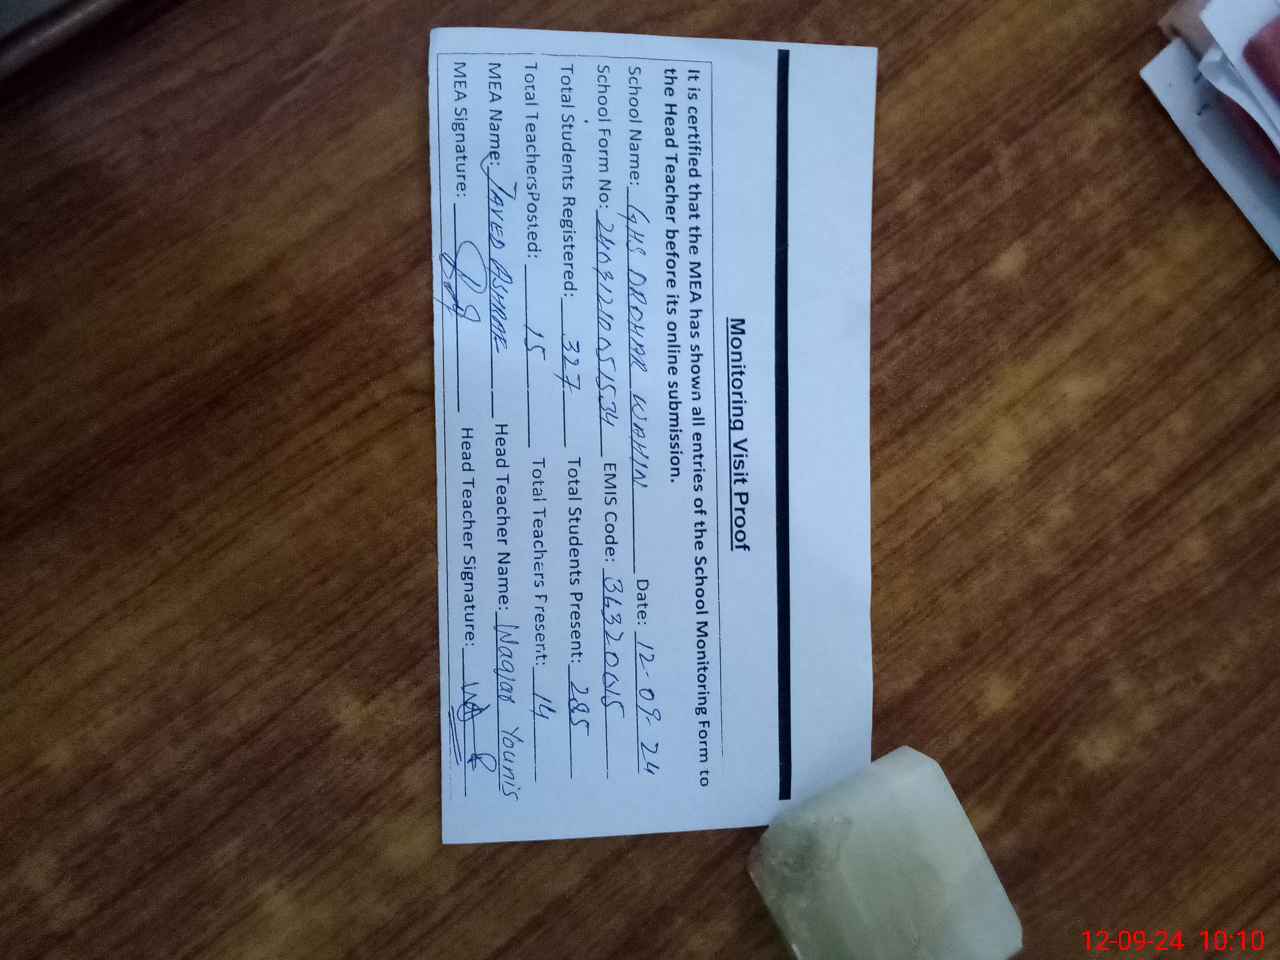 Monitoring Visit Proof
It is certified that the MEA has shown all entries of the School Monitoring Form to
the Head Teacher before its online submission.
School Name: GHS DROHAR WAHIN Date: 12-09-24
School Form No: EMIS Code:
Total Students Registered: 327 Total Students Present: 285
Total TeachersPosted: 15 Total Teachers Present: 14
MEA Name: JAVED ASHRAF Head Teacher Name: Waqar Younis
MEA Signature: Head Teacher Signature:
12-09-24 10:10